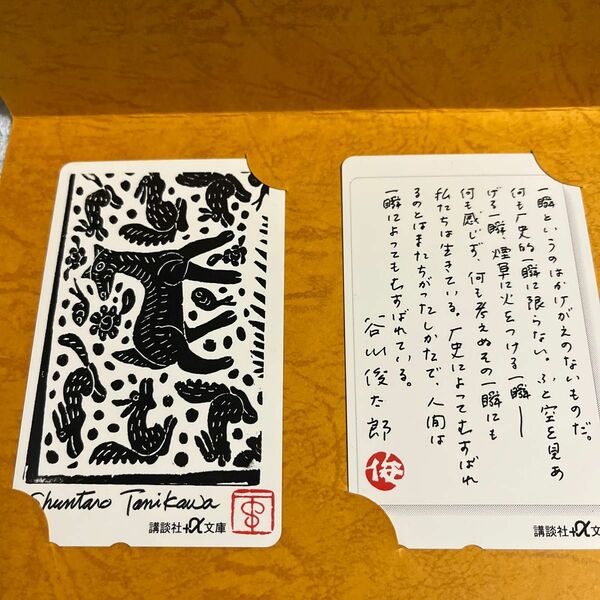 Shuntaro Tanikawa
講談社+α文庫
一瞬というのはかけがえのないものだ。
何も厂史的一瞬に限らない。ふと空を見あ
げる一瞬 煙草に火をつける一瞬——
何も感じず、何も考えぬその一瞬にも
私たちは生きている。厂史によってむすばれ
るのとはまたちがったしかたで、人間は
一瞬によってもむすばれている。
谷川俊太郎
俊
講談社+α文